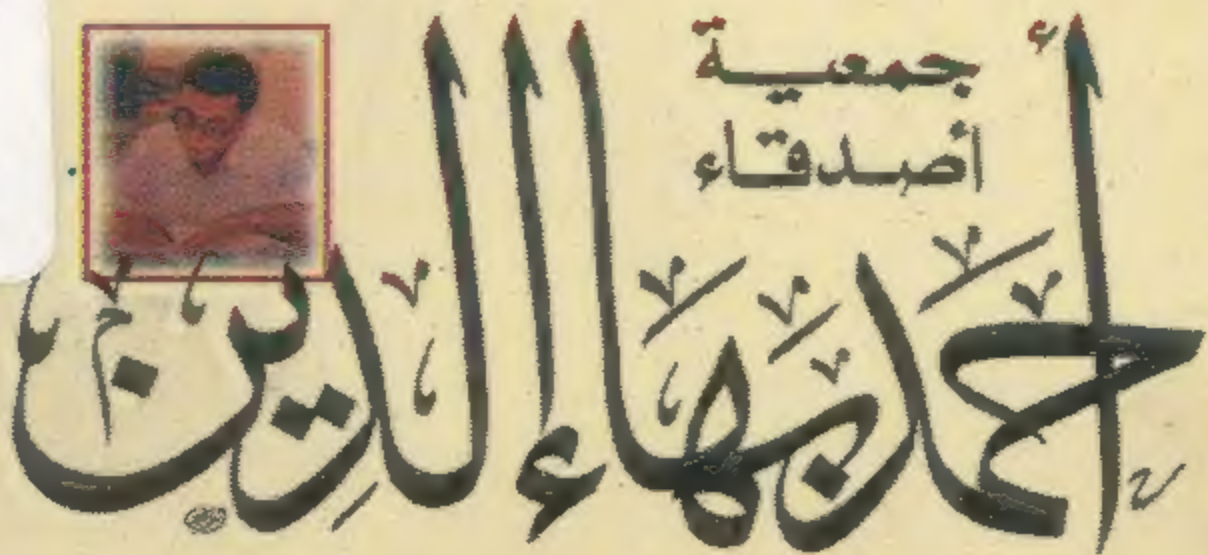 جمعية
أصدقاء
أحمد بهاء الدين